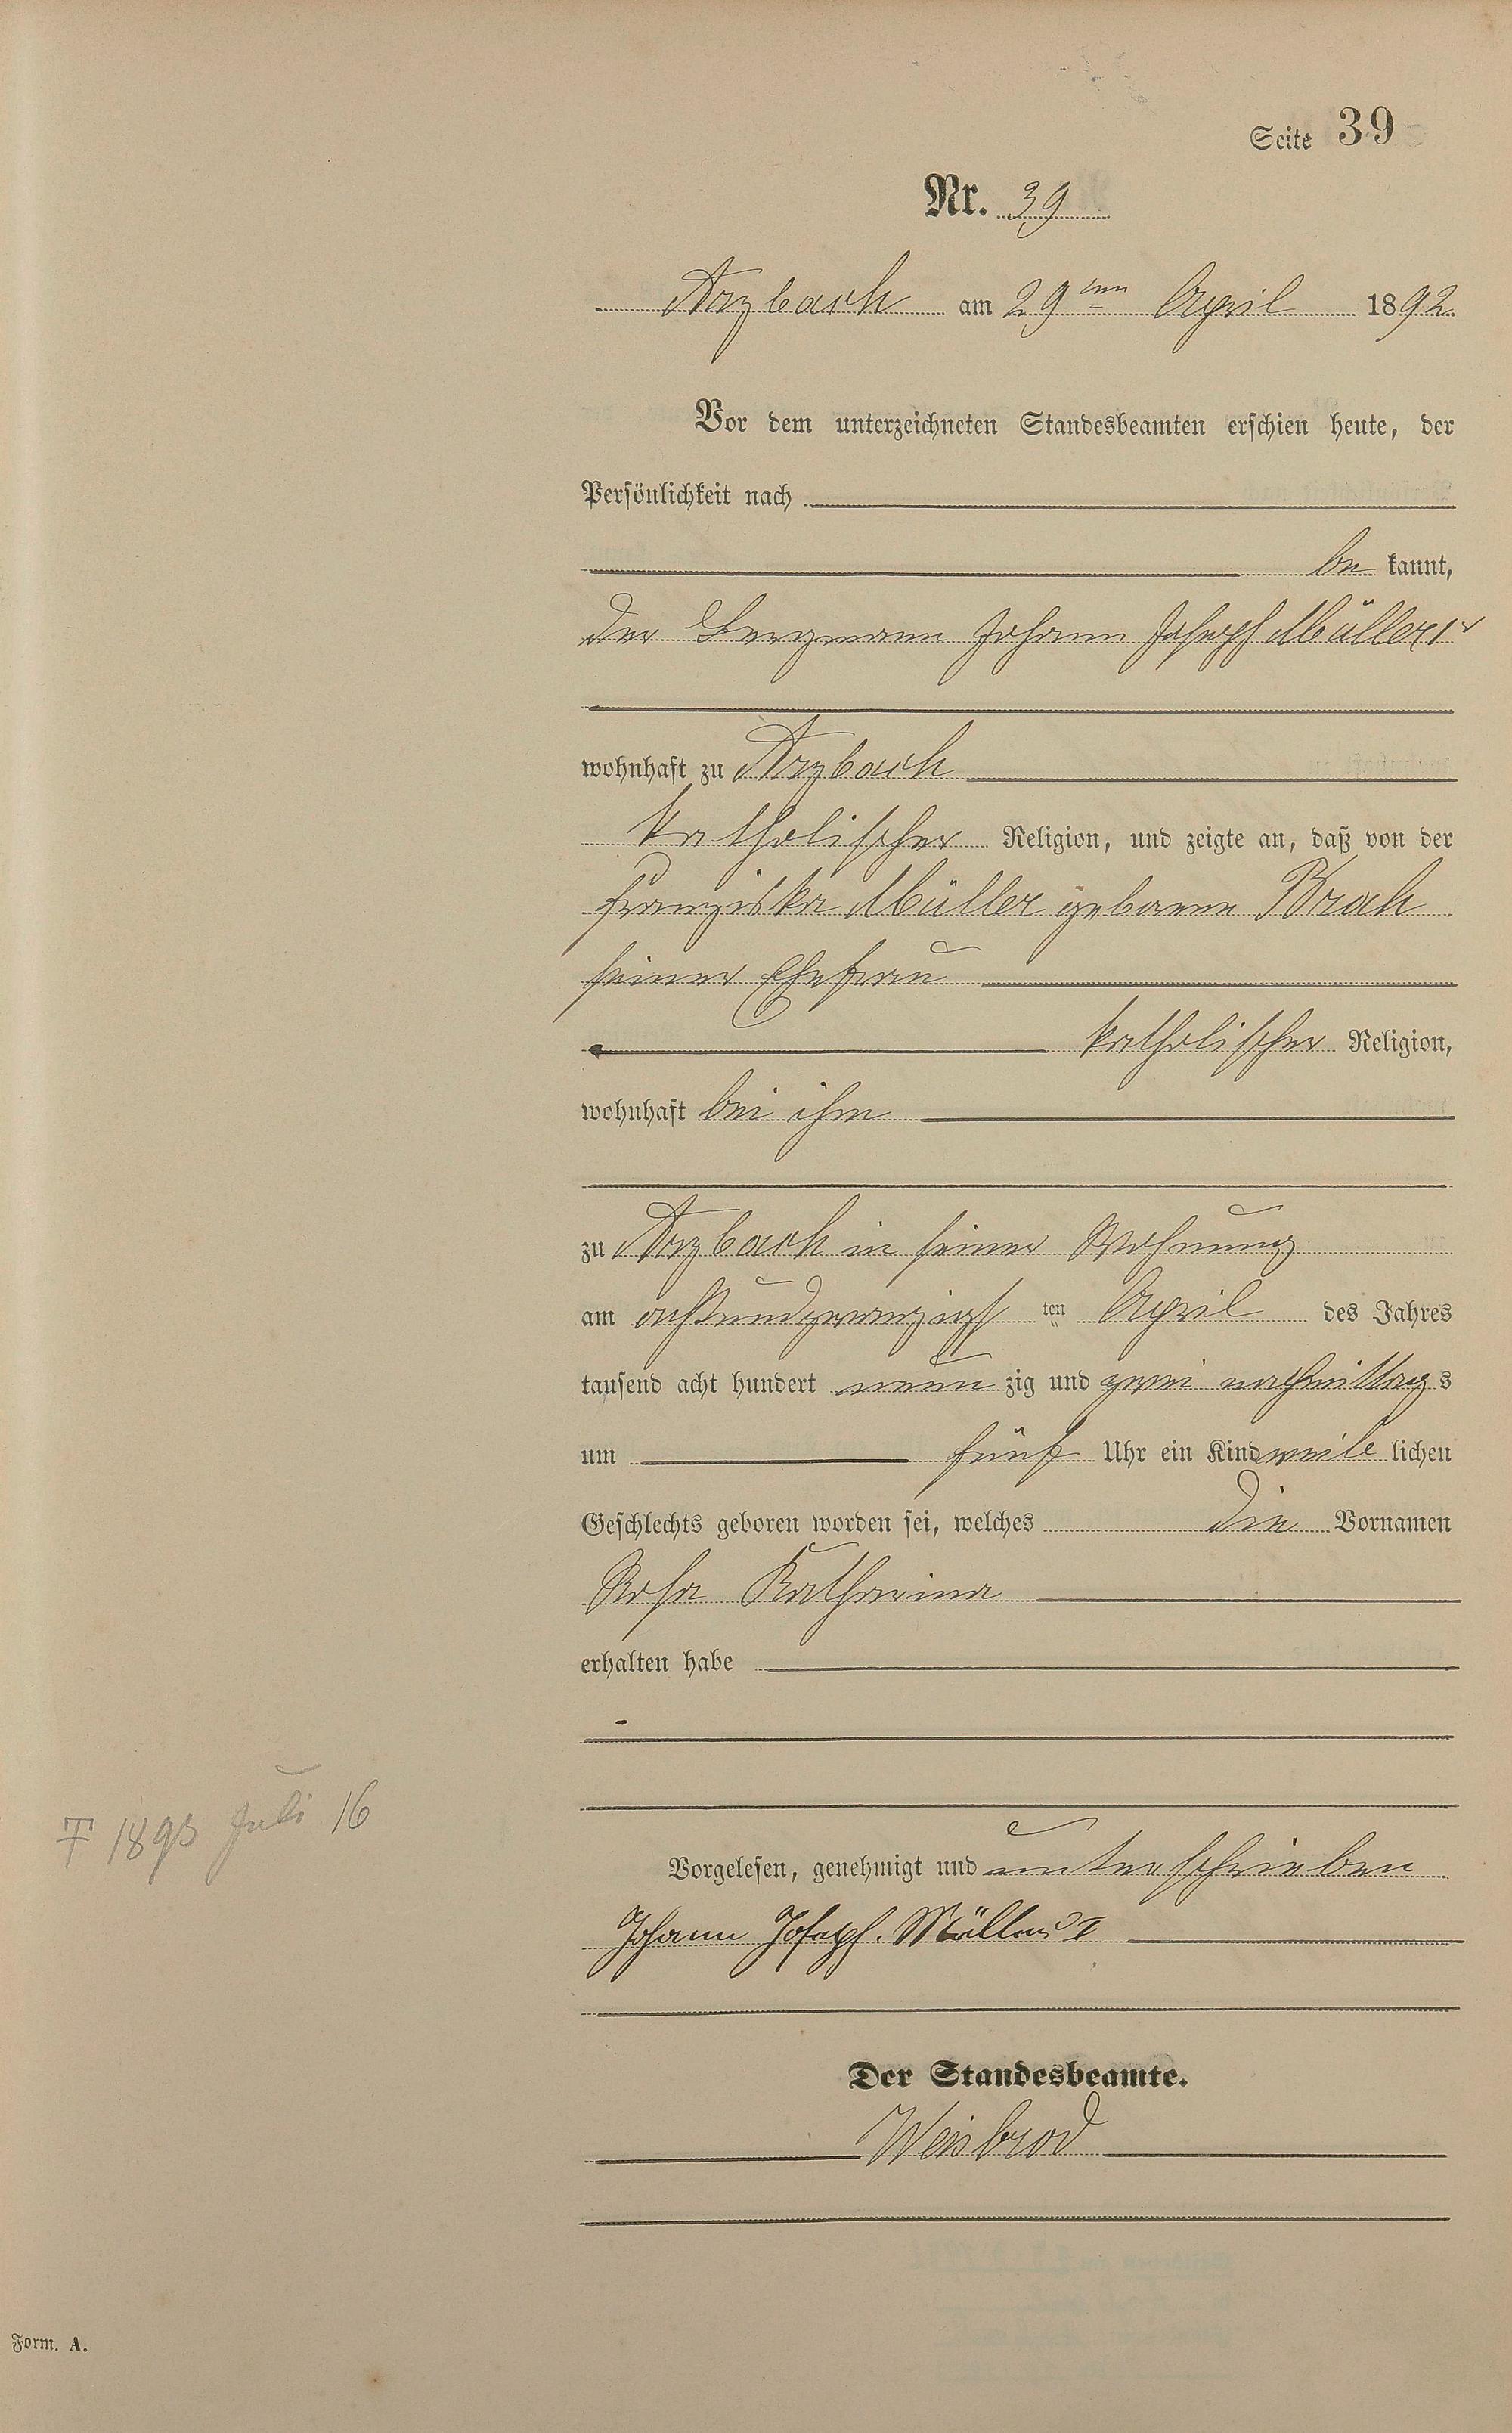 Seite 39
Nr. 39
Arzbach am 29ten April 1892.
Vor dem unterzeichneten Standesbeamten erschien heute, der
Persönlichkeit nach
be kannt,
der Bergmann Johann Joseph Müller 1r
wohnhaft zu Arzbach
katholischer Religion, und zeigte an, daß von der
Franziska Müller geborene Brah
seiner Ehefrau
katholischer Religion,
wohnhaft bei ihm
zu Arzbach in seiner Wohnung
am achtundzwanzigst ten April des Jahres
tausend acht hundert neun zig und zwei nachmittags
um fünf Uhr ein Kind weib lichen
Geschlechts geboren worden sei, welches die Vornamen
Rosa Katharina
erhalten habe
† 1893 Juli 16
Vorgelesen, genehmigt und unterschrieben
Johann Joseph. Müller I
Der Standesbeamte.
Weisbrod
Form. A.